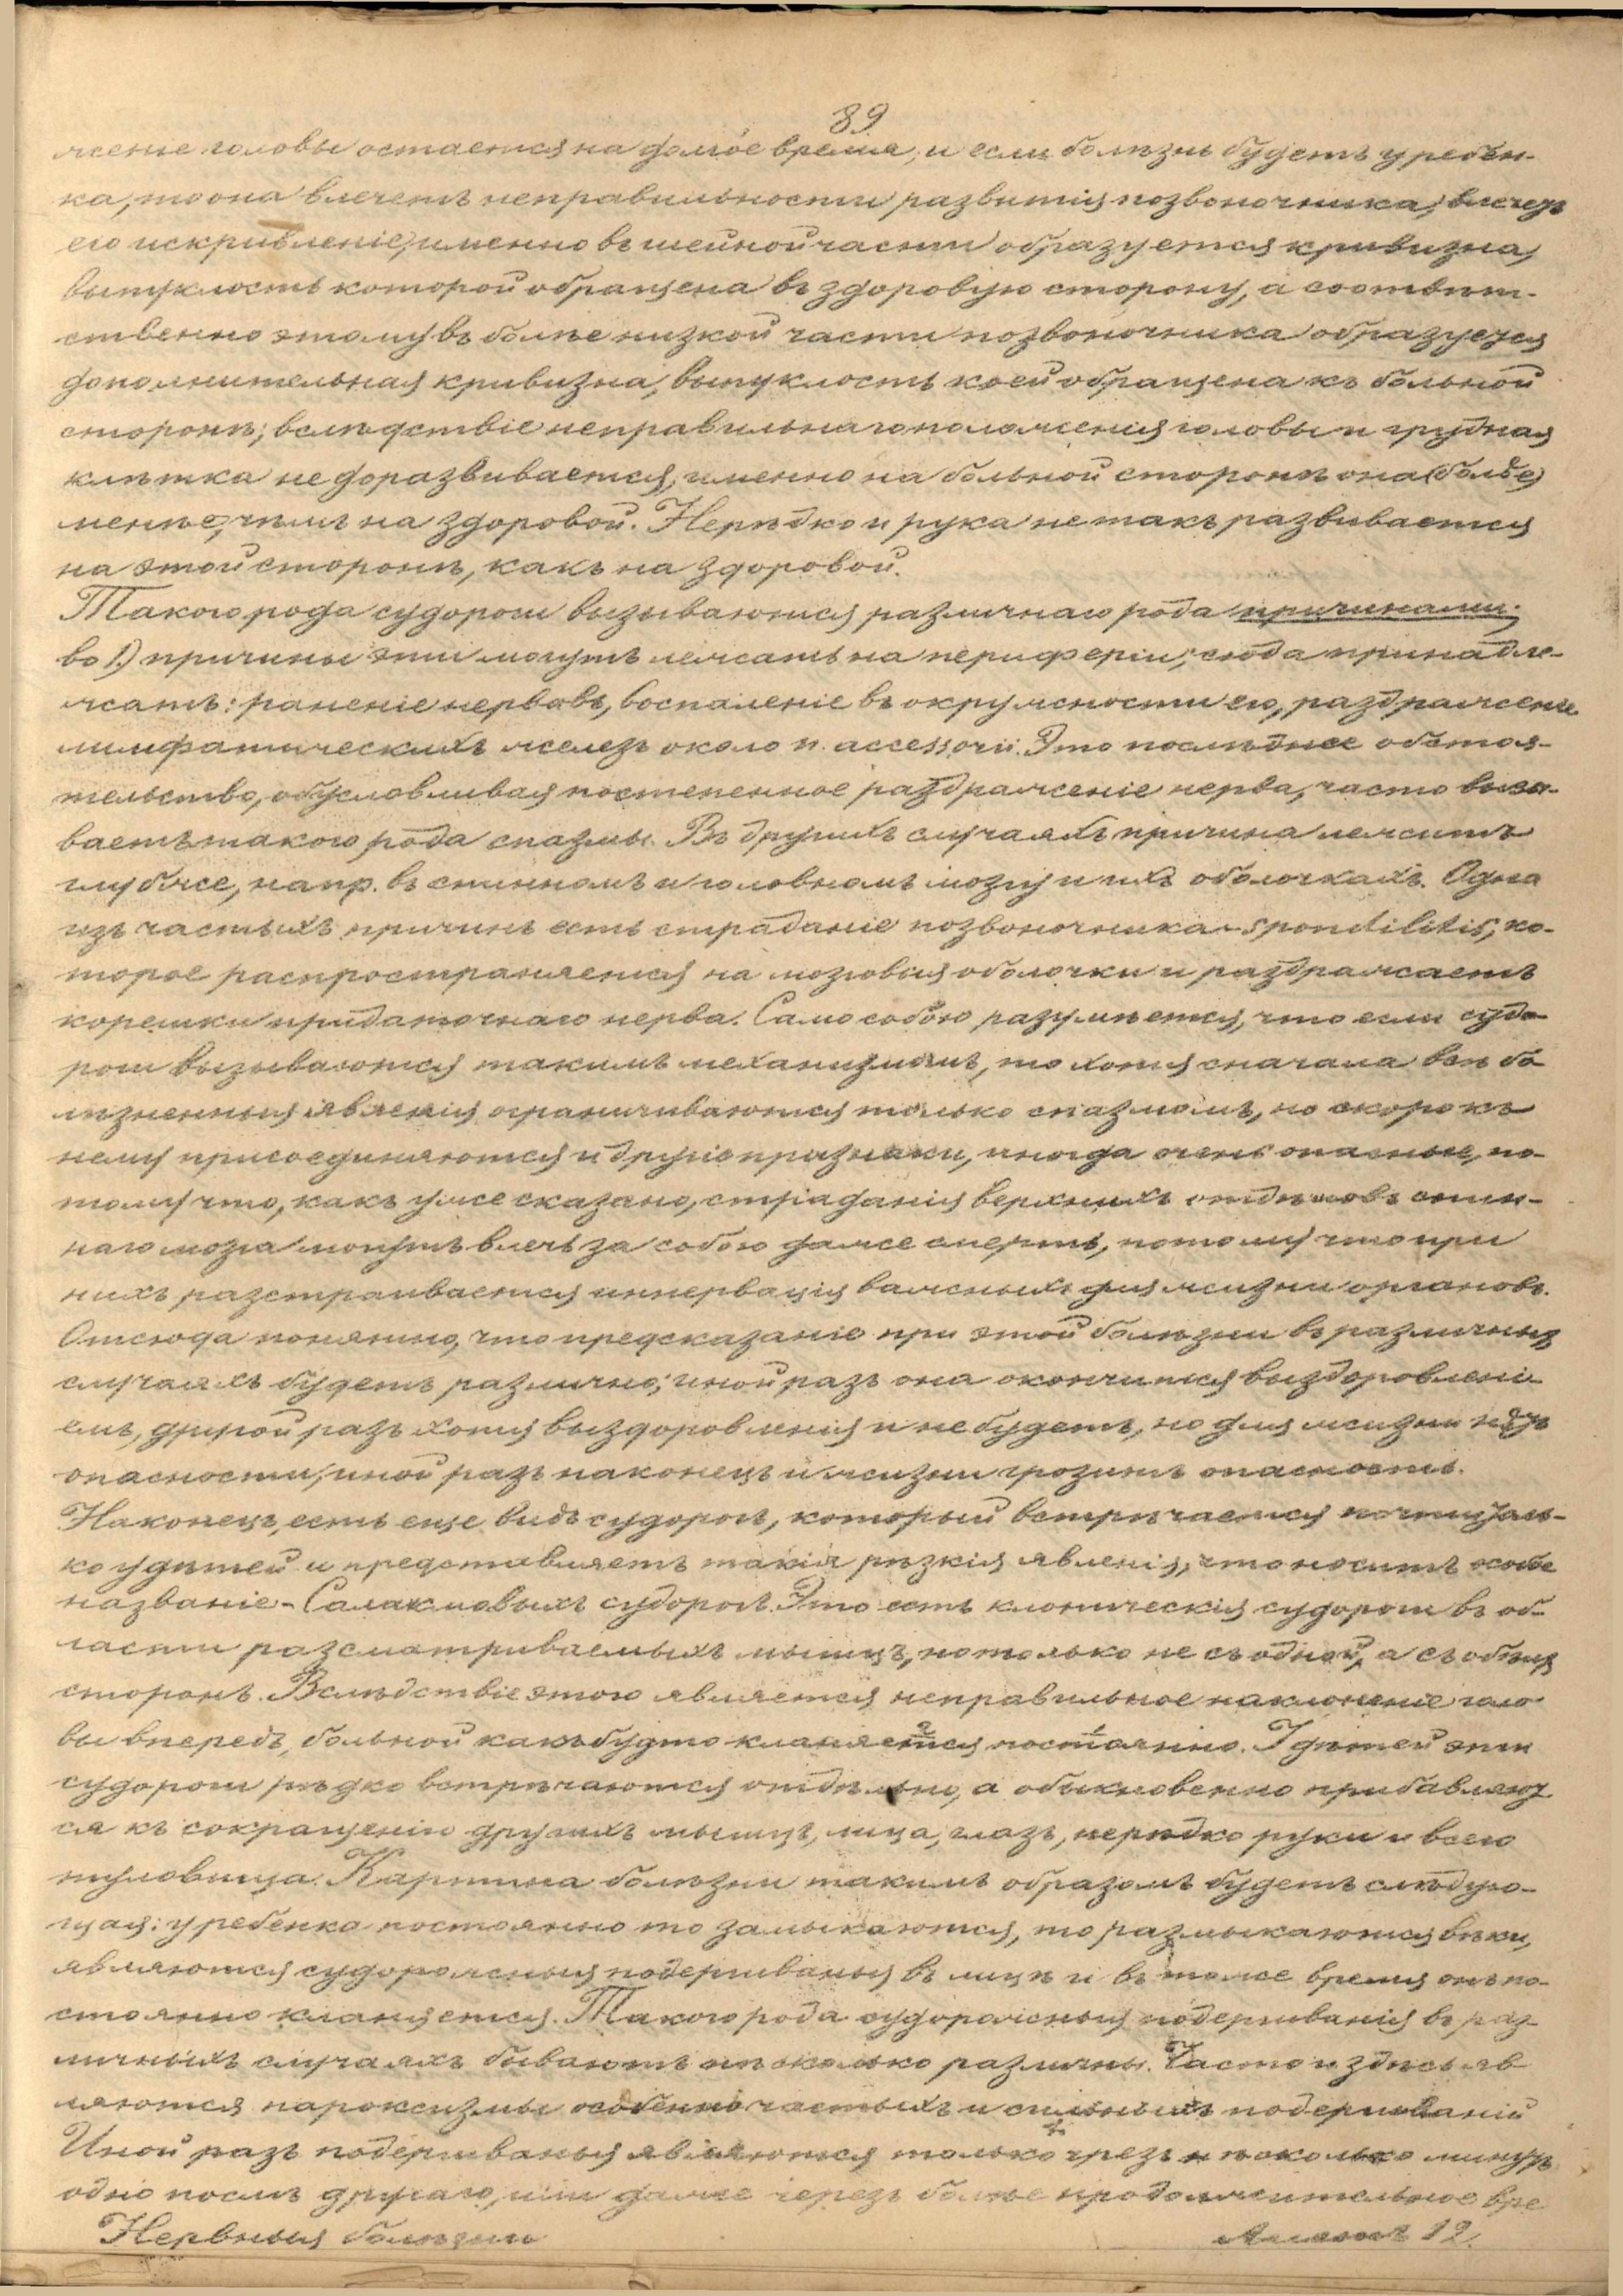 89
жение головы остается на долгое время; и если болѣзнь будетъ у ребен-
ка, то она влечетъ неправильности развитія позвоночника, влечетъ
его искривленіе, именно въ шейной части образуется кривизна,
выпуклость которой обращена въ здоровую сторону, а соотвѣт-
ственно этому въ болѣе низкой части позвоночника образуется
дополнительная кривизна, выпуклость коей обращена къ больной
сторонѣ; вслѣдствіе неправильнаго положенія головы и грудная
клѣтка не доразвивается, именно на больной сторонѣ она (болѣе)
менѣе, чѣмъ на здоровой. Нерѣдко и рука не такъ развивается
на этой сторонѣ, какъ на здоровой.
Такого рода судороги вызываются различнаго рода причинами:
во 1.) причины эти могутъ лежать на периферіи; сюда принадле-
жатъ: раненіе нервовъ, воспаленіе въ окружности его, раздраженіе
лимфатическихъ железъ около n. accessorii. Это послѣднее обстоя-
тельство, обусловливая постепенное раздраженіе нерва, часто вызы-
ваетъ такого рода спазмы. Въ другихъ случаяхъ причина лежитъ
глубже, напр. въ спинномъ и головномъ мозгу и ихъ оболочкахъ. Одна
изъ частыхъ причинъ есть страданіе позвоночника - spondilitis, ко-
торое распространяется на мозговыя оболочки и раздражаетъ
корешки придаточнаго нерва. Само собою разумѣется, что если судо-
роги вызываются такимъ механизмомъ, то хотя сначала всѣ бо-
лѣзненныя явленія ограничиваются только спазмомъ, но скоро къ
нему присоединяются и другіе признаки, иногда очень опасные, по-
тому что, какъ уже сказано, страданія верхнихъ отдѣловъ спин-
наго мозга могутъ влечь за собою даже смерть, потому что при
нихъ разстраивается иннервація важныхъ для жизни органовъ.
Отсюда понятно, что предсказаніе при этой болѣзни въ различныхъ
случаяхъ будетъ различно; иной разъ она окончится выздоровлені-
емъ, другой разъ хотя выздоровленія и не будетъ, но для жизни нѣтъ
опасности, иной разъ наконецъ и жизни грозитъ опасность.
Наконецъ, есть еще видъ судорогъ, который встрѣчается почти толь-
ко у дѣтей и представляетъ такія рѣзкія явленія, что носитъ особое
названіе - Салаамовыхъ судорогъ. Это есть клоническія судороги въ об-
ласти разсматриваемыхъ мышцъ, но только не съ одной, а съ обѣихъ
сторонъ. Вслѣдствіе этого является неправильное наклоненіе голо-
вы впередъ, больной какъ будто кланяется постоянно. У дѣтей эти
судороги рѣдко встрѣчаются отдѣльно, а обыкновенно прибавляют-
ся къ сокращенію другихъ мышцъ, лица, глазъ, нерѣдко руки и всего
туловища. Картина болѣзни такимъ образомъ будетъ слѣдую-
щая: у ребенка постоянно то замыкаются, то размыкаются вѣки,
являются судорожныя подергиванья въ лицѣ и въ тоже время онъ по-
стоянно кланяется. Такого рода судорожныя подергиванія въ раз-
личныхъ случаяхъ бываютъ нѣсколько различны. Часто и здѣсь яв-
ляются пароксизмы особенно частыхъ и сильныхъ подергиваній
Иной разъ подергиванья являются только чрезъ нѣсколько минутъ
одно послѣ другаго, или даже черезъ болѣе продолжительное вре
Нервныя болѣзни 12.